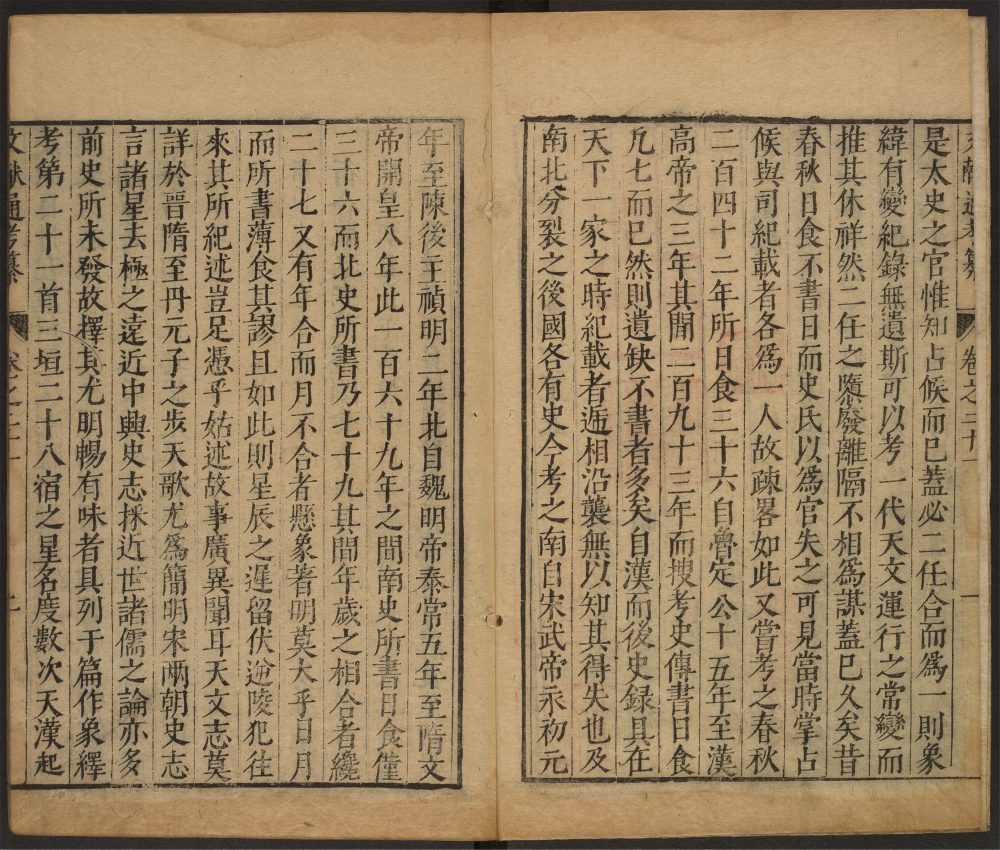 文獻通考纂
卷之二十一
一
是太史之官惟知占候而已蓋必二任合而爲一則象
緯有變紀錄無遺斯可以考一代天文運行之常變而
推其休祥然二任之隳廢離隔不相爲謀蓋已久矣昔
春秋日食不書日而史氏以爲官失之可見當時掌占
候與司紀載者各爲一人故疎畧如此又嘗考之春秋
二百四十二年所日食三十六自魯定公十五年至漢
高帝之三年其間二百九十三年而搜考史傳書日食
凢七而已然則遺缺不書者多矣自漢而後史録具在
天下一家之時紀載者遞相沿襲無以知其得失也及
南北分裂之後國各有史今考之南自宋武帝永初元
年至陳後主禎明二年北自魏明帝泰常五年至隋文
帝開皇八年此一百六十九年之間南史所書日食僅
三十六而北史所書乃七十九其間年歲之相合者纔
二十七又有年合而月不合者懸象著明莫大乎日月
而所書薄食其謬且如此則星辰之遲留伏逆陵犯往
來其所紀述豈足憑乎姑述故事廣異聞耳天文志莫
詳於晉隋至丹元子之步天歌尤爲簡明宋兩朝史志
言諸星去極之遠近中興史志採近世諸儒之論亦多
前史所未發故擇其尤明暢有味者具列于篇作象緯
考第二十一首三垣二十八宿之星名度數次天漢起
文獻通考纂
卷之二十一